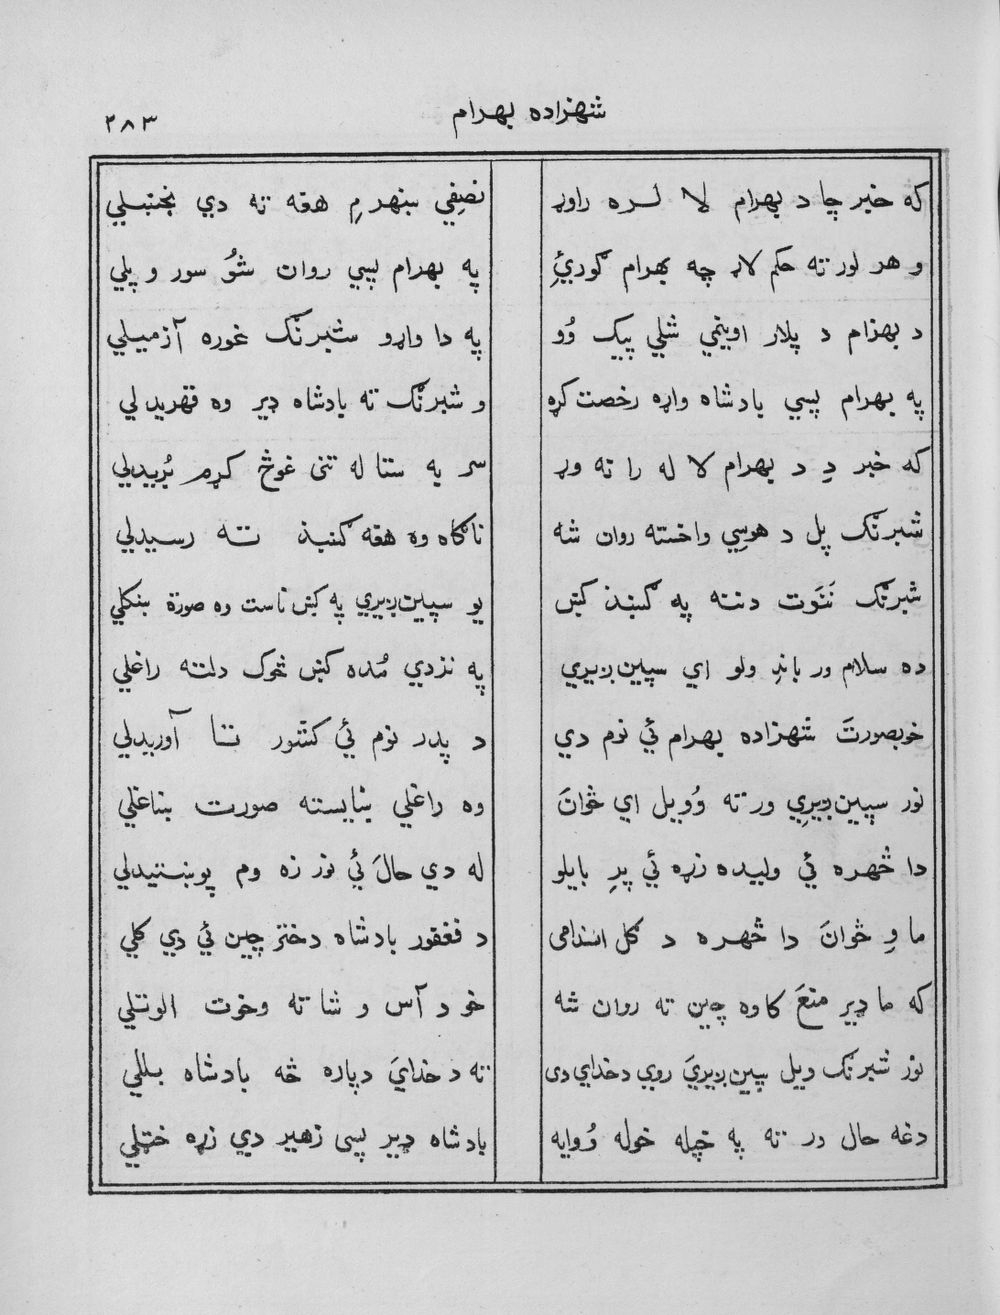 شهزاده بهرام
۲۸۳
که خبر چا د بهرام لا لره راوړ
نصفي ښهر مِ هغه ته دي بخښلي
و هر لور ته حکم لاړ چه بهرام ګورئِ
په بهرام پسي روان شوُ سور و پلي
د بهرام د پلار اوينځي شلي پيک وُو
په دا واړو شبرنګ غوره آزميلي
په بهرام پسي بادشاه واړه رخصت کړه
و شبرنګ ته بادشاه ډير وه قهريدلي
که خبر دِ د بهرام لا له را ته وړ
سر به ستا له تنی غوڅ کړم بُريدلي
شبرنګ پل د هوسِي واخسته روان شه
ناګاه وه هغه ګنبذ ته رسيدلي
شبرنګ نَنَوت دننه په ګنبذ کښ
يو سپين ږيري په کښ ناست وه صورة ښکلي
ده سلام ور باندِ ولو اي سپين ږيري
په نزدي مُده کښ څوک دلته راغلي
خوبصورتَ شهزاده بهرام ئ نوم دي
د پدر نوم ئ کشور تا آوريدلي
نور سپين ږيري ورته وُويل اي ځوانَ
وه راغلي ښايسته صورت ښاغلي
دا څهره ئ وليده زړه ئ پرِ بايلو
له دي حالَ ئ نور زه وم پوښتيدلي
ما وِ ځوانَ دا څهره د ګل اندامی
د فغفور بادشاه دختر چين ئ دي کلي
که ما ډير منعَ کاوه چين ته روان شه
خو د آس و شا ته وخوت الوتلي
نور شبرنګ ويل سپين ږيريَ روي د خداي دی
ته د خدايَ دپاره څه بادشاه بللي
دغه حال ور ته په خپله خوله وُوايه
بادشاه ډير پسی زهير دي زړه ختلي